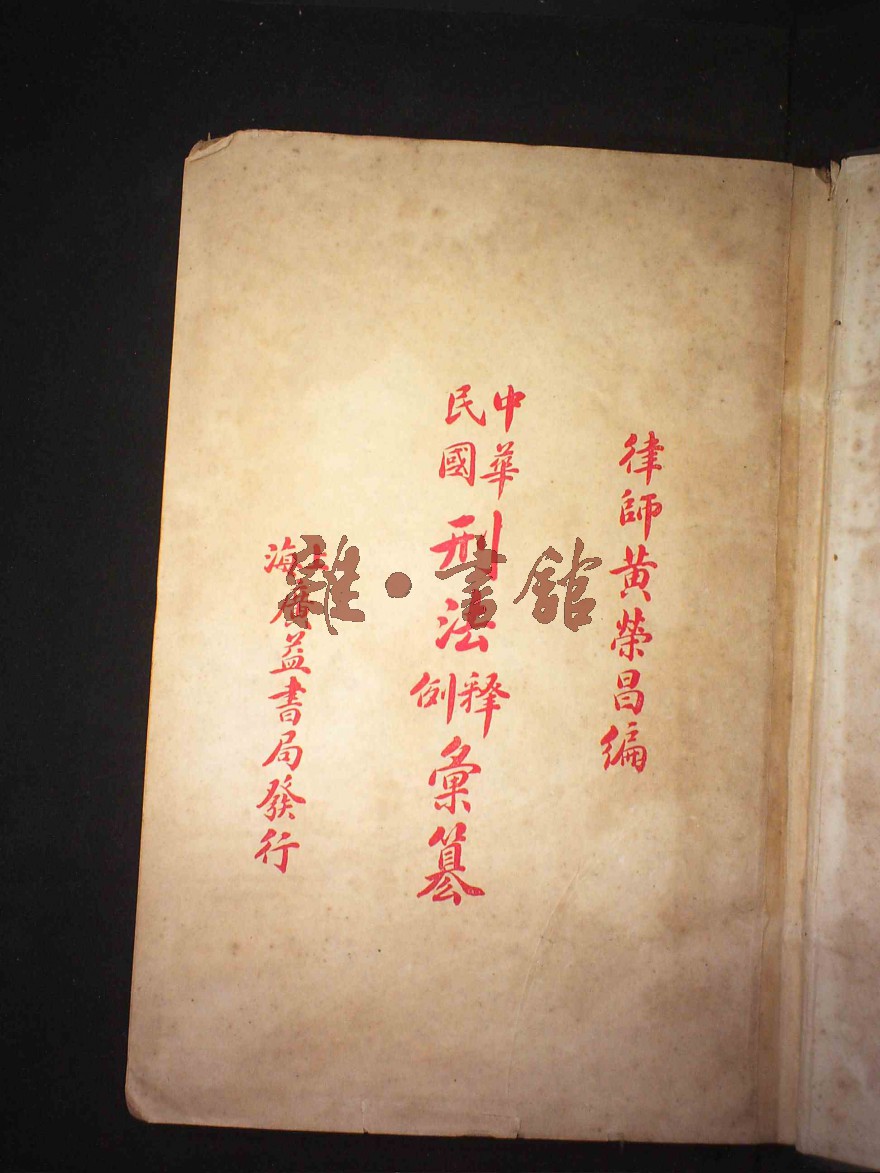 律師黄榮昌編
中華民國刑法釋例彙纂
上海廣益書局發行
雜·書館